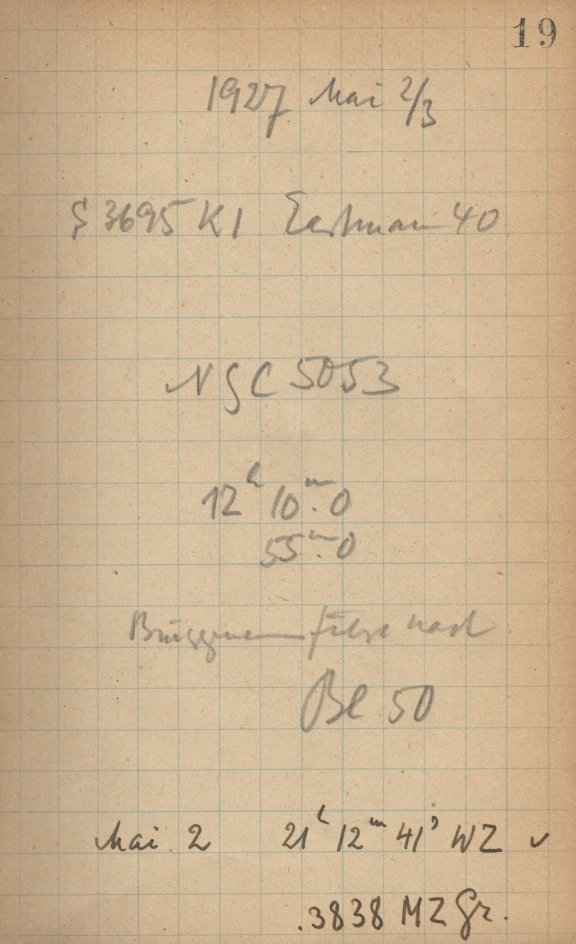 19
1927 Mai 2/3
S 3695 K1 Eastman 40
NGC 5053
12ʰ 10ᵐ.0
55ᵐ.0
Brüggemann führt nach
Bl 50
Mai 2 21ʰ 12ᵐ 41ˢ WZ ✓
.3838 MZ Gr.